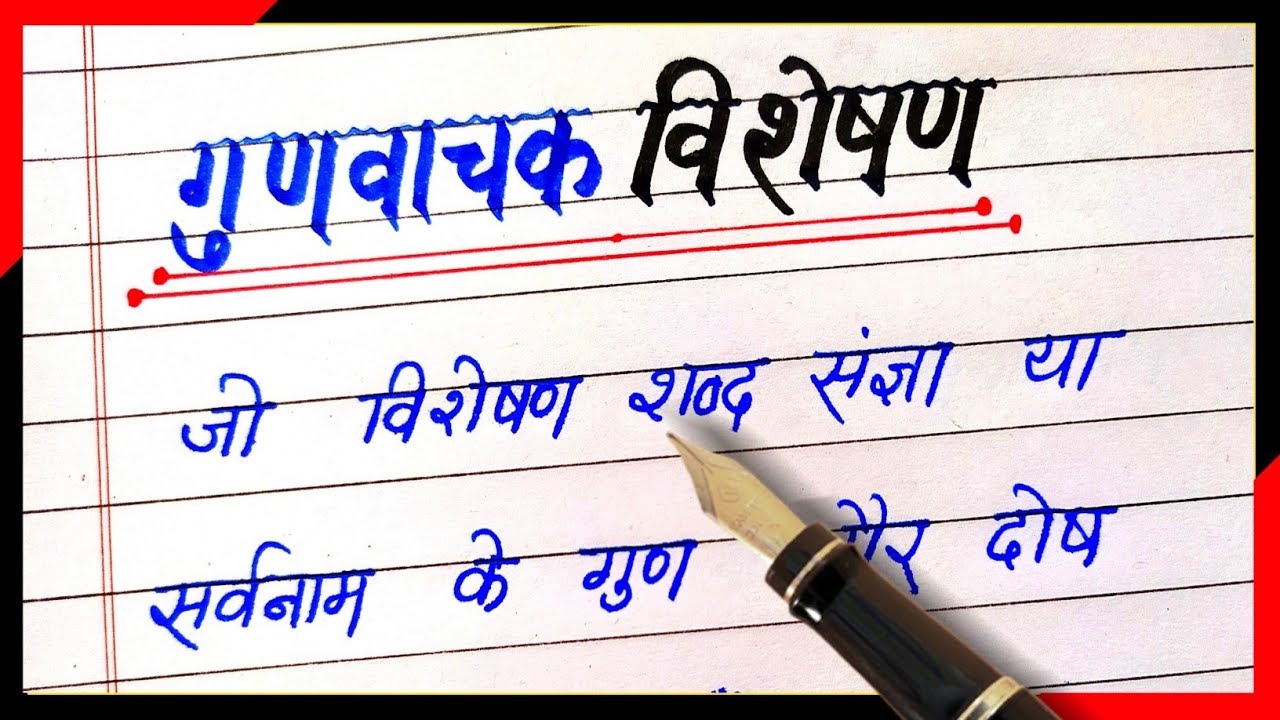 गुणवाचक विशेषण
जो विशेषण शब्द संज्ञा या
सर्वनाम के गुण दोष